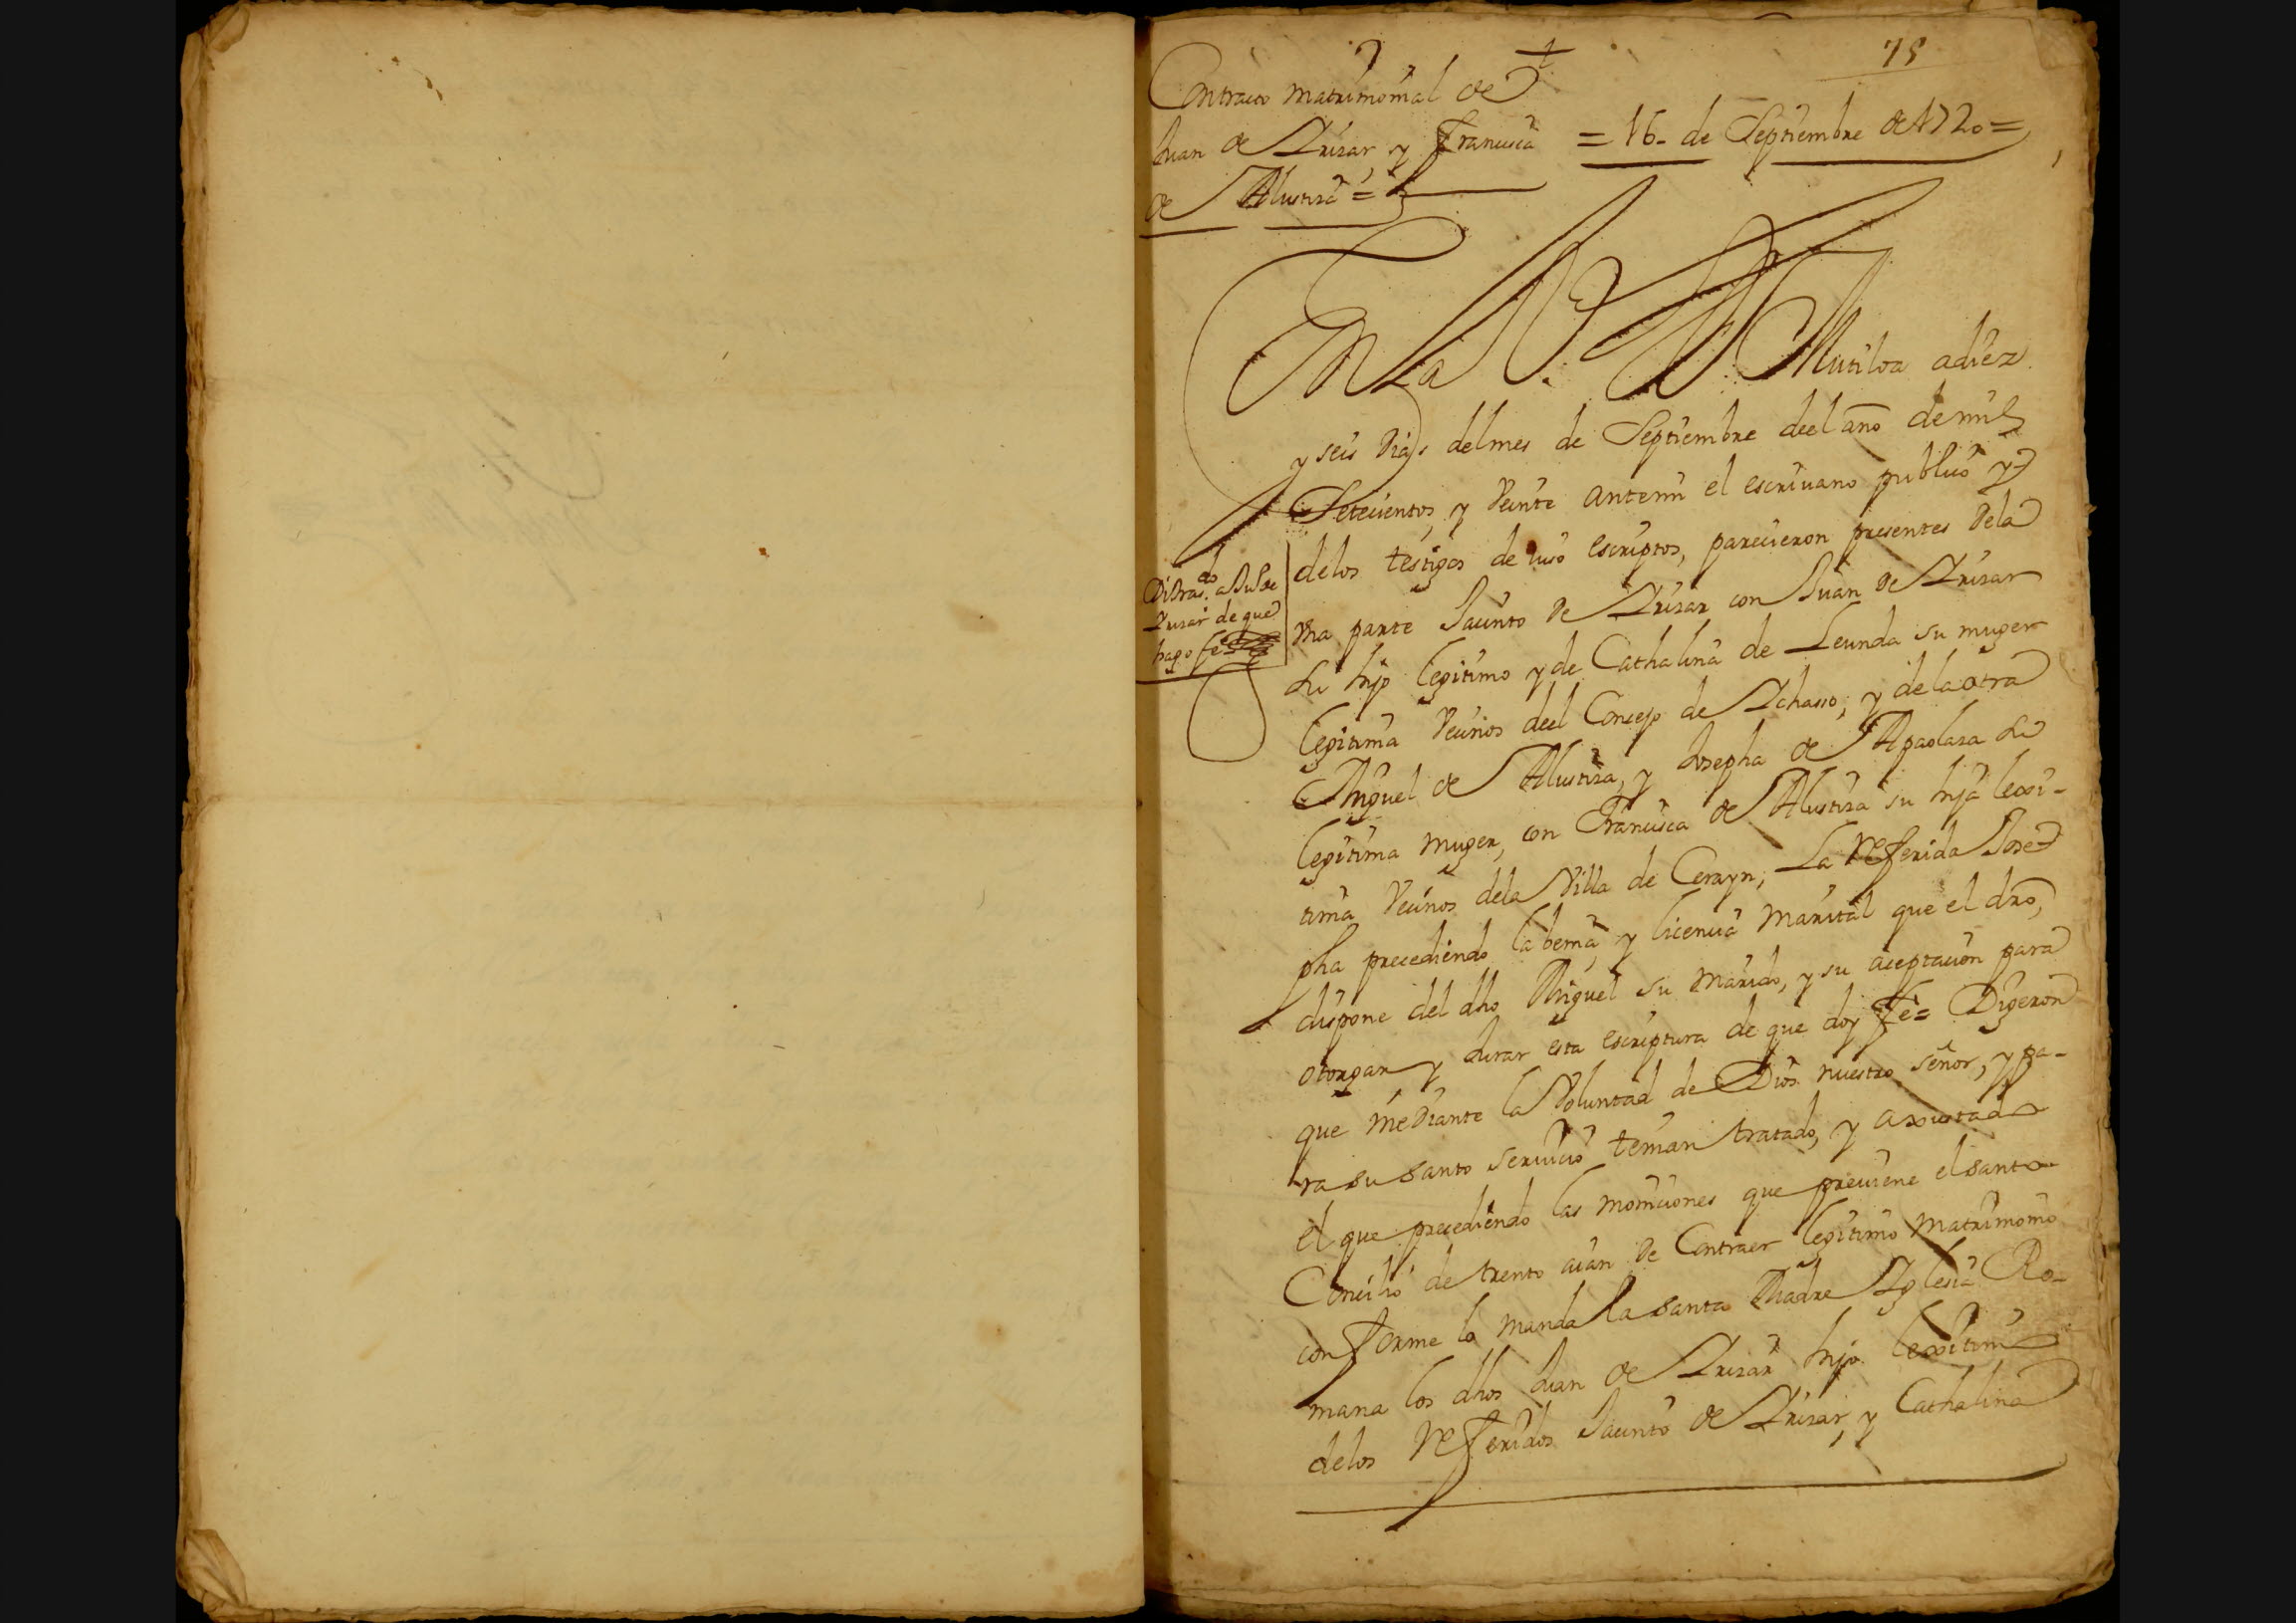 75
Contracto matrimonial de
Juan de Yrizar y Francisca
de Alustiza =
= 16 - de Septiembre de 1720 =
En la V.ª de Mutiloa a diez
y seis dias del mes de Septiembre deel año de mil
Setecientos, y Veinte ante mi el escriuano publico y
de los testigos de iuso escriptos, parecieron presentes dela
vna parte Jacinto de Yrizar con Juan de Yrizar
su hijo legitimo y de Cathalina de Leunda su muger
legitima Vecinos deel Concejo de Ychasso; y de la otra
Miguel de Alustiza, y Josepha de Apaolaza su
legitima muger, con Francisca de Alustiza su hija lexi-
tima Vecinos dela Villa de Cerayn; La referida Jose
pha precediendo la benia, y licencia marital que el dro,
dispone del dho Miguel su marido, y su aceptacion para
otorgar y Jurar esta escriptura de que doy fe = Digeron
que mediante la Voluntad de Dios nuestro señor, y pa-
ra su santo seruicio tenian tratado, y axustado
el que precediendo las moniciones que preuiene el santo
Concilio de trento aian de Contraer legitimo matrimonio
conforme lo manda la santa Madre Yglesia Ro-
mana los dhos Juan de Yrizar hijo lexitimo
delos referidos Jacinto de Yrizar, y Cathalina
Yrizar de que
hago fe